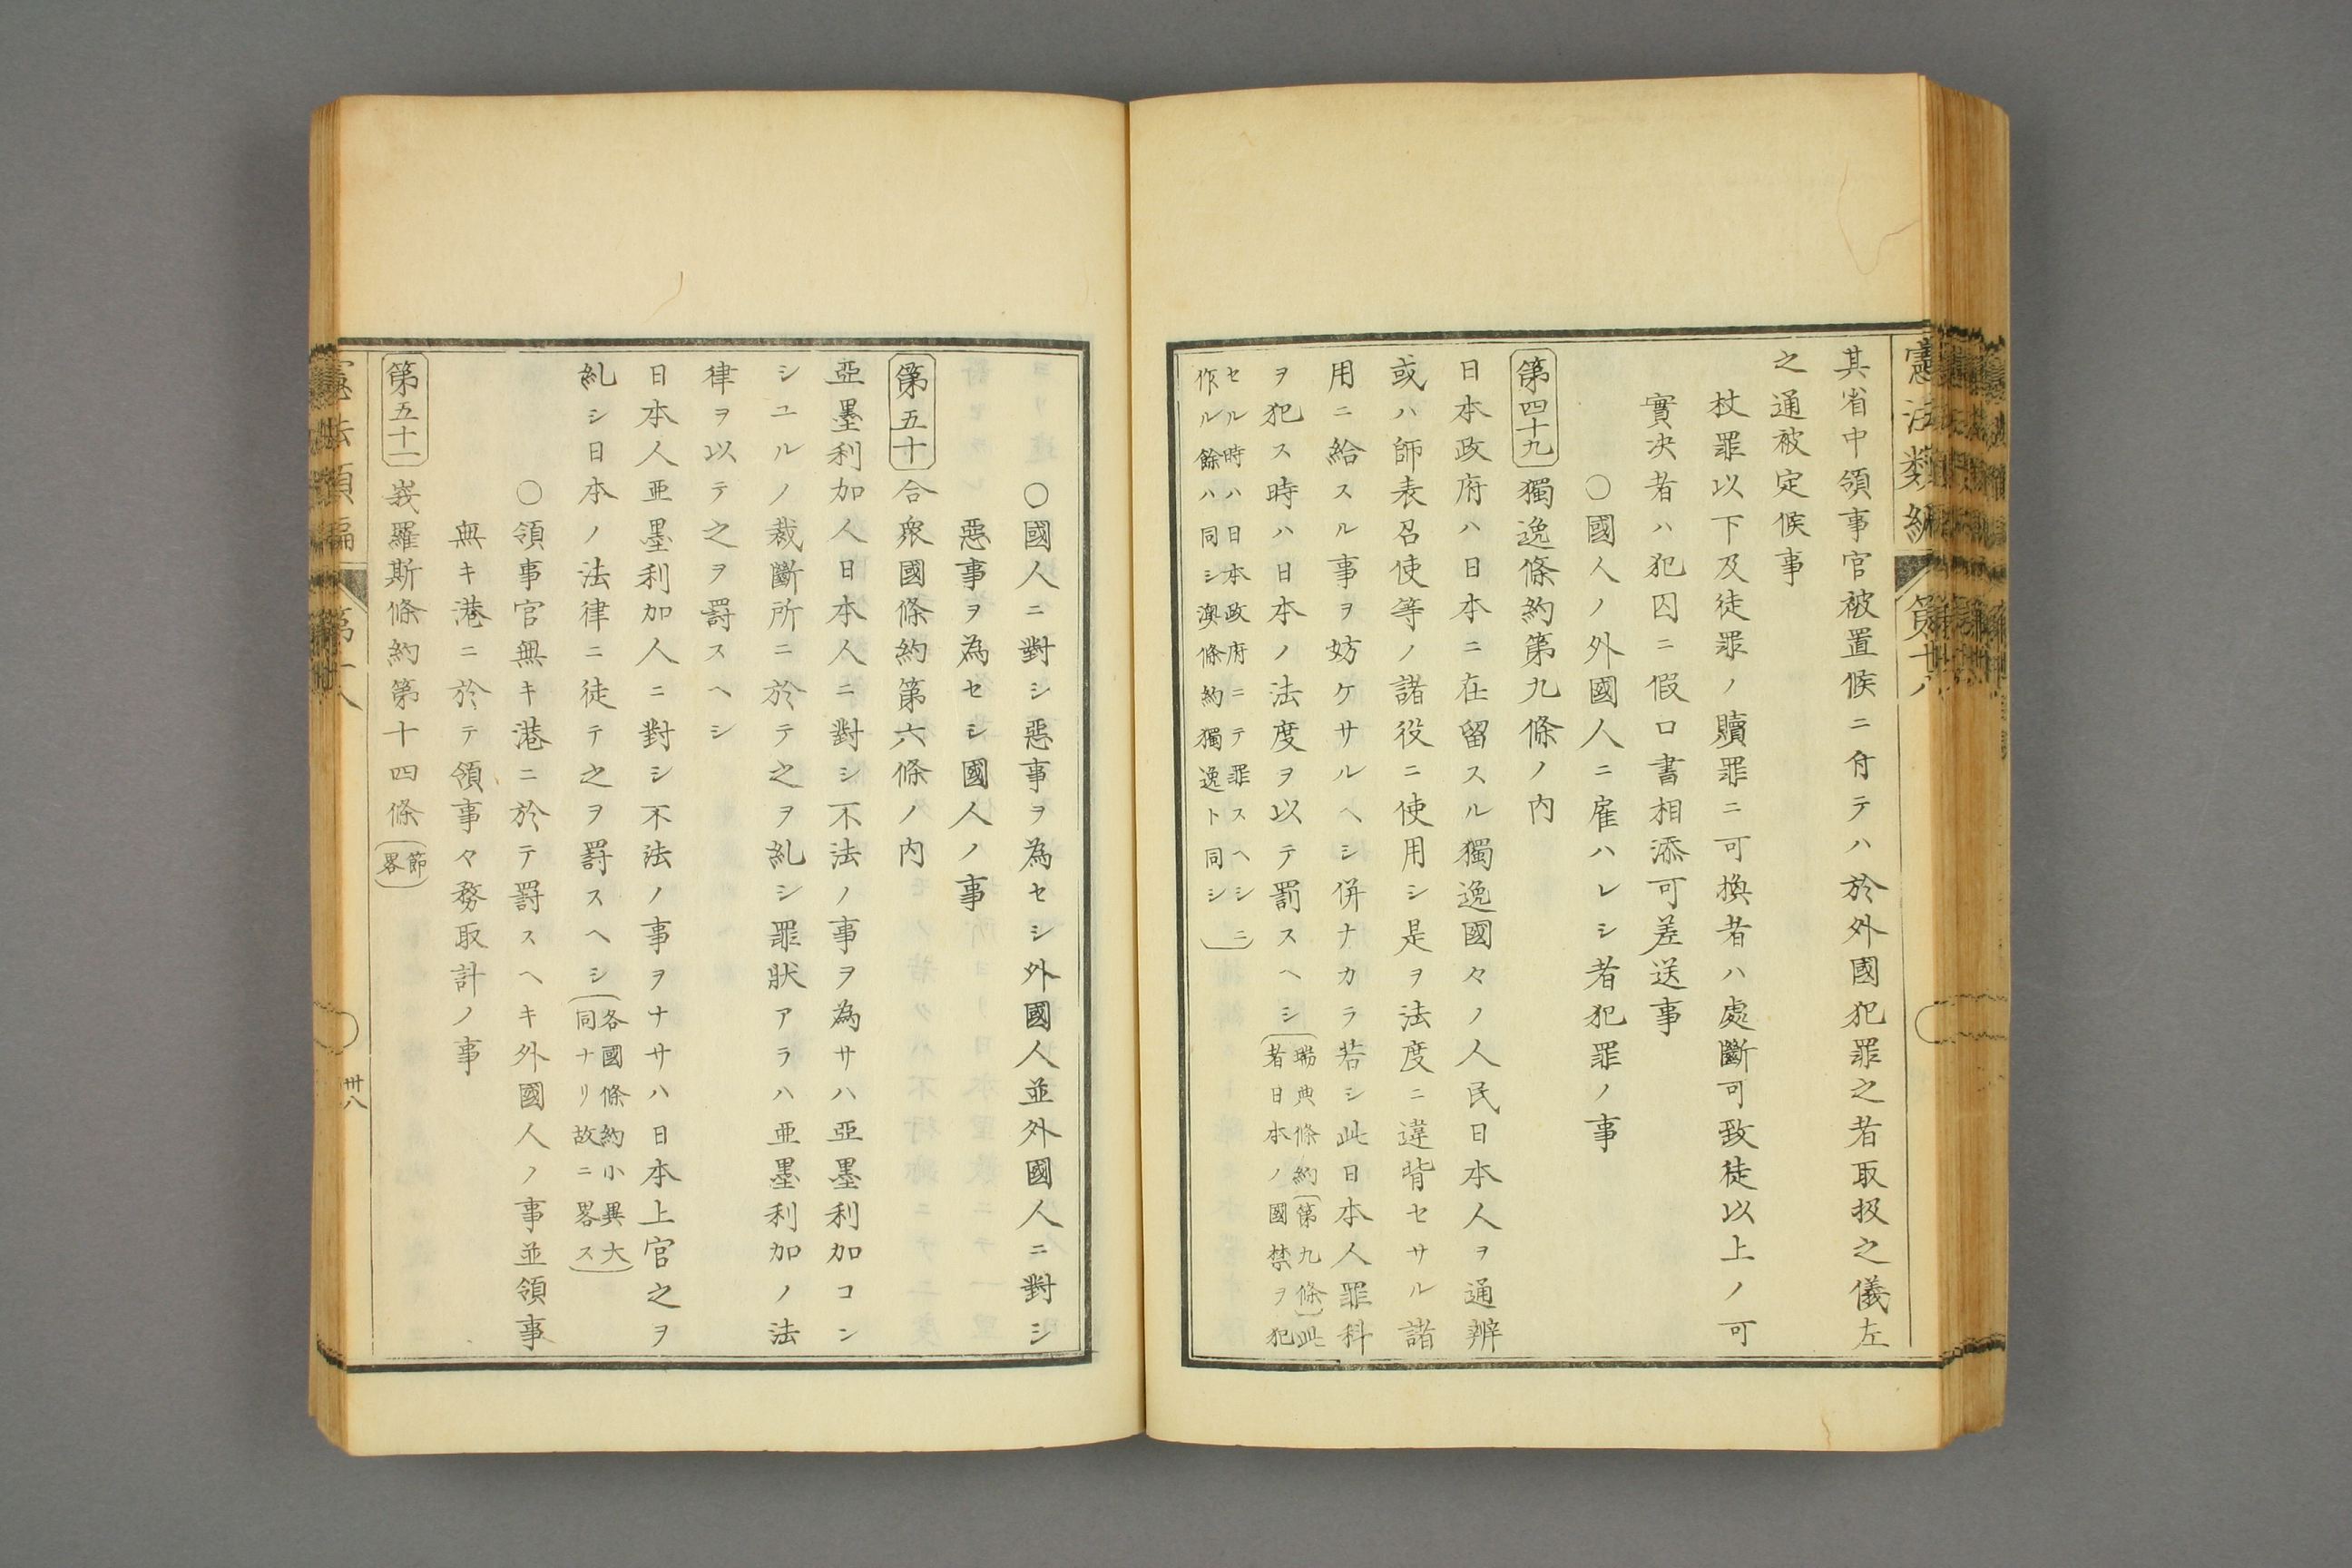 憲法類編 第十八
其省中領事官被置候ニ付テハ於外國犯罪之者取扱之儀左
之通被定候事
杖罪以下及徒罪ノ贖罪ニ可換者ハ處斷可致徒以上ノ可
實决者ハ犯囚ニ假口書相添可差送事
〇國人ノ外國人ニ雇ハレシ者犯罪ノ事
第四十九 獨逸條約第九條ノ内
日本政府ハ日本ニ在留スル獨逸國々ノ人民日本人ヲ通辨
或ハ師表召使等ノ諸役ニ使用シ是ヲ法度ニ違背セサル諸
用ニ給スル事ヲ妨ケサルヘシ併ナカラ若シ此日本人罪科
ヲ犯ス時ハ日本ノ法度ヲ以テ罰スヘシ(瑞典條約(第九條)此
者日本ノ國禁ヲ犯
セル時ハ日本政府ニテ罪スヘシニ
作ル餘ハ同シ澳條約獨逸ト同シ)
〇國人ニ對シ惡事ヲ為セシ外國人並外國人ニ對シ
惡事ヲ為セシ國人ノ事
第五十 合衆國條約第六條ノ内
亞墨利加人日本人ニ對シ不法ノ事ヲ為サハ亞墨利加コン
シユルノ裁斷所ニ於テ之ヲ糺シ罪狀アラハ亜墨利加ノ法
律ヲ以テ之ヲ罸スヘシ
日本人亜墨利加人ニ對シ不法ノ事ヲナサハ日本上官之ヲ
糺シ日本ノ法律ニ徒テ之ヲ罸スヘシ(各國條約小異大
同ナリ故ニ畧ス)
〇領事官無キ港ニ於テ罸スヘキ外國人ノ事並領事
無キ港ニ於テ領事々務取計ノ事
第五十一 峩羅斯條約第十四條(節
畧)
憲法類編 第十八 卅八